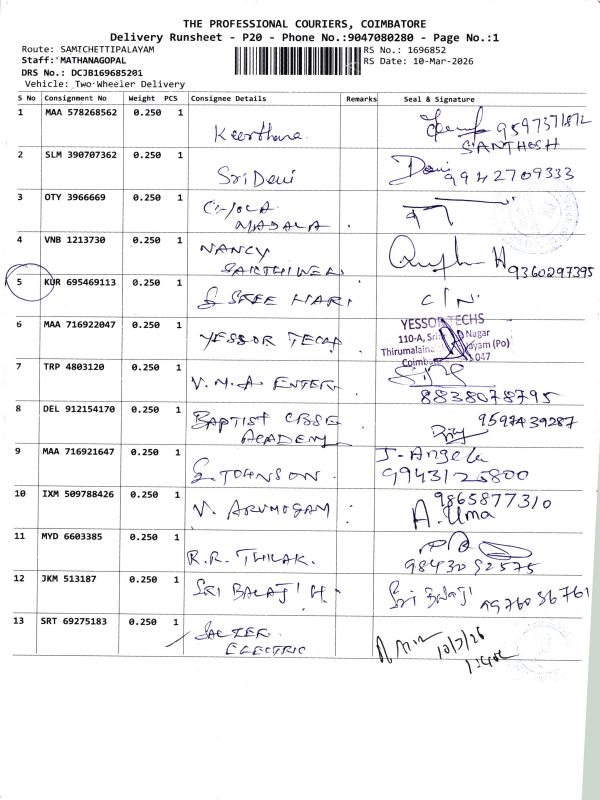 THE PROFESSIONAL COURIERS, COIMBATORE
Delivery Runsheet - P20 - Phone No.:9047080280 - Page No.:1
Route: SAMICHETTIPALAYAM
RS No.: 1696852
Staff: MATHANAGOPAL
RS Date: 10-Mar-2026
DRS No.: DCJB169685201
Vehicle: Two-Wheeler Delivery
S No Consignment No Weight PCS Consignee Details Remarks Seal & Signature
1 MAA 578268562 0.250 1 Keerthana 9597371872
SANTHOSH
2 SLM 390707362 0.250 1 Sri Devi Devi 9942709333
3 OTY 3966669 0.250 1
MASALA
4 VNB 1213730 0.250 1 NANCY
9360297395
5 KUR 695469113 0.250 1 S SREE HARI C/N.
6 MAA 716922047 0.250 1 YESSOR TECH
YESSOR TECHS
110-A, Nagar
(Po)
047
7 TRP 4803120 0.250 1 V.M.A ENTER
8838078795
8 DEL 912154170 0.250 1 BAPTIST CBSE
ACADEMY
9597439287
9 MAA 716921647 0.250 1 S. JOHNSON J. Angela
9943125800
10 IXM 509788426 0.250 1 V. ARUMUGAM 9865877310
A. Uma
11 MYD 6603385 0.250 1 R.R. THILAK.
9843092575
12 JKM 513187 0.250 1 SRI BALAJI H. Sri Balaji 9976036761
13 SRT 69275183 0.250 1
ELECTRIC